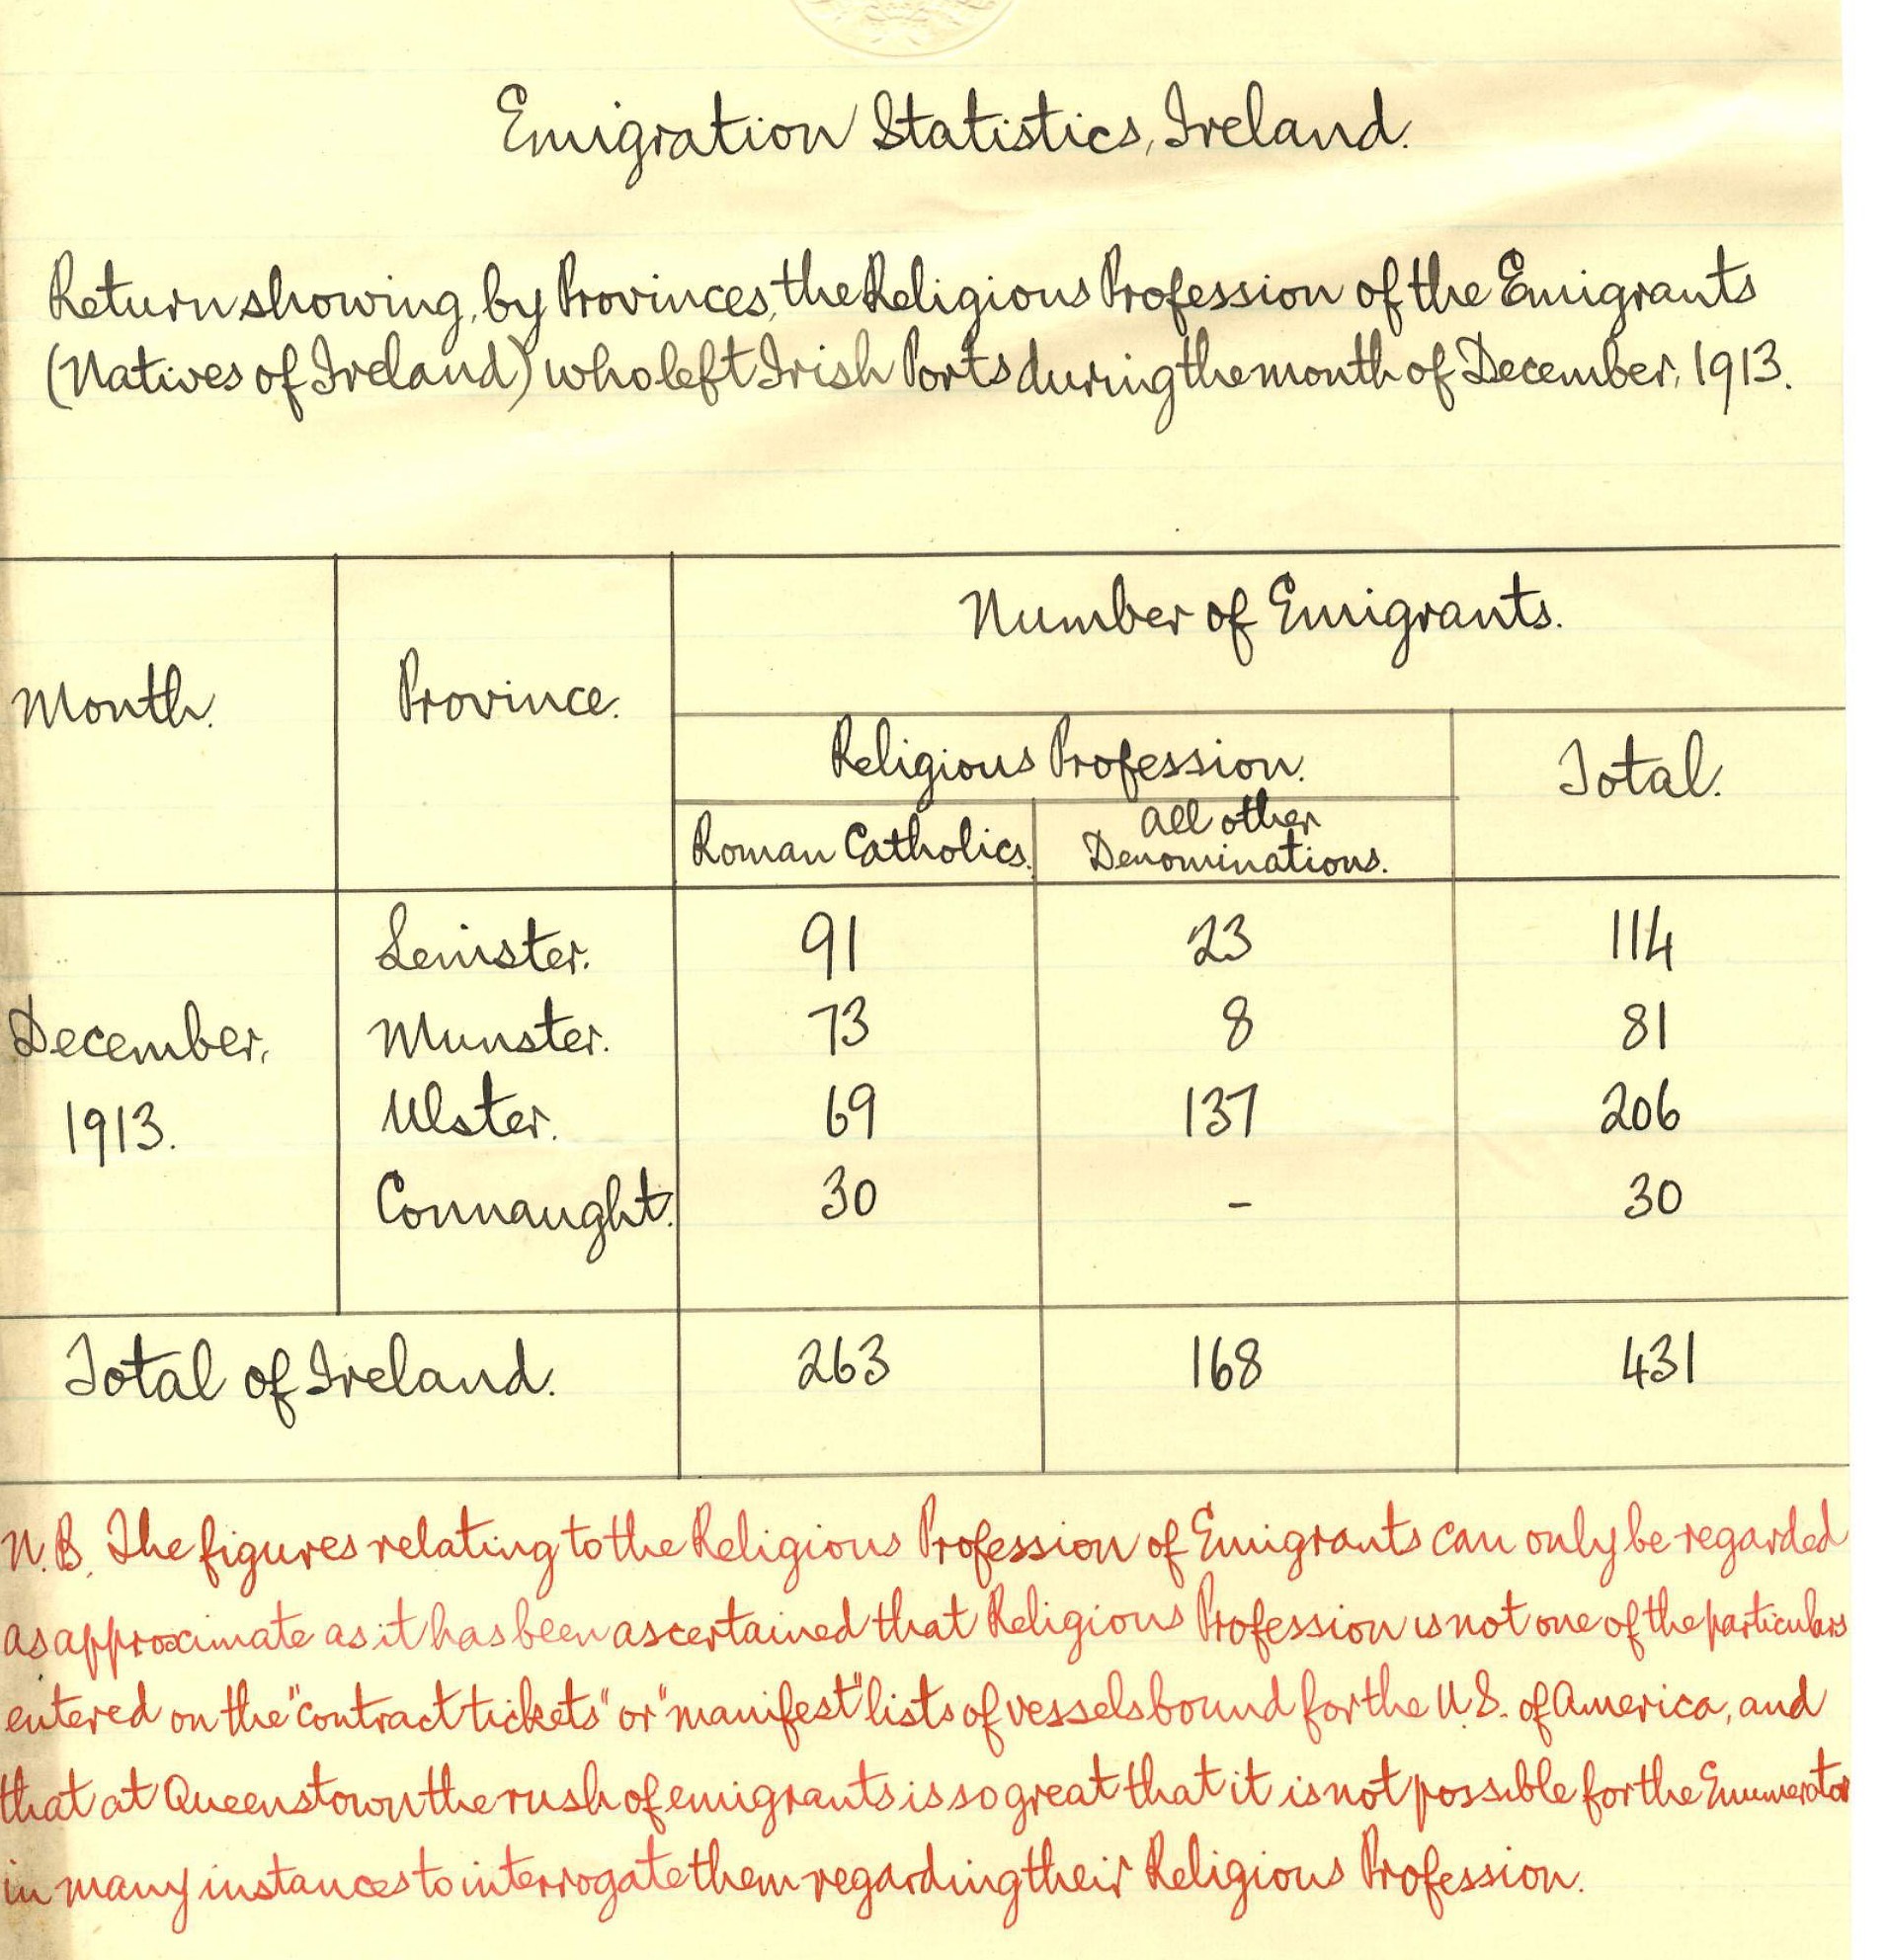 Emigration Statistics, Ireland.
Return showing, by Provinces, the Religious Profession of the Emigrants
(Natives of Ireland) who left Irish Ports during the month of December, 1913.
Number of Emigrants.
Month. Province.
Religious Profession. Total.
All other
Roman Catholics. Denominations.
Leinster. 91 23 114
December, Munster. 73 8 81
1913. Ulster. 69 137 206
Connaught. 30 - 30
Total of Ireland. 263 168 431
N.B. The figures relating to the Religious Profession of Emigrants can only be regarded
as approximate as it has been ascertained that Religious Profession is not one of the particulars
entered on the "contract tickets" or "manifest" lists of vessels bound for the U.S. of America, and
that at Queenstown the rush of emigrants is so great that it is not possible for the Enumerator
in many instances to interrogate them regarding their Religious Profession.